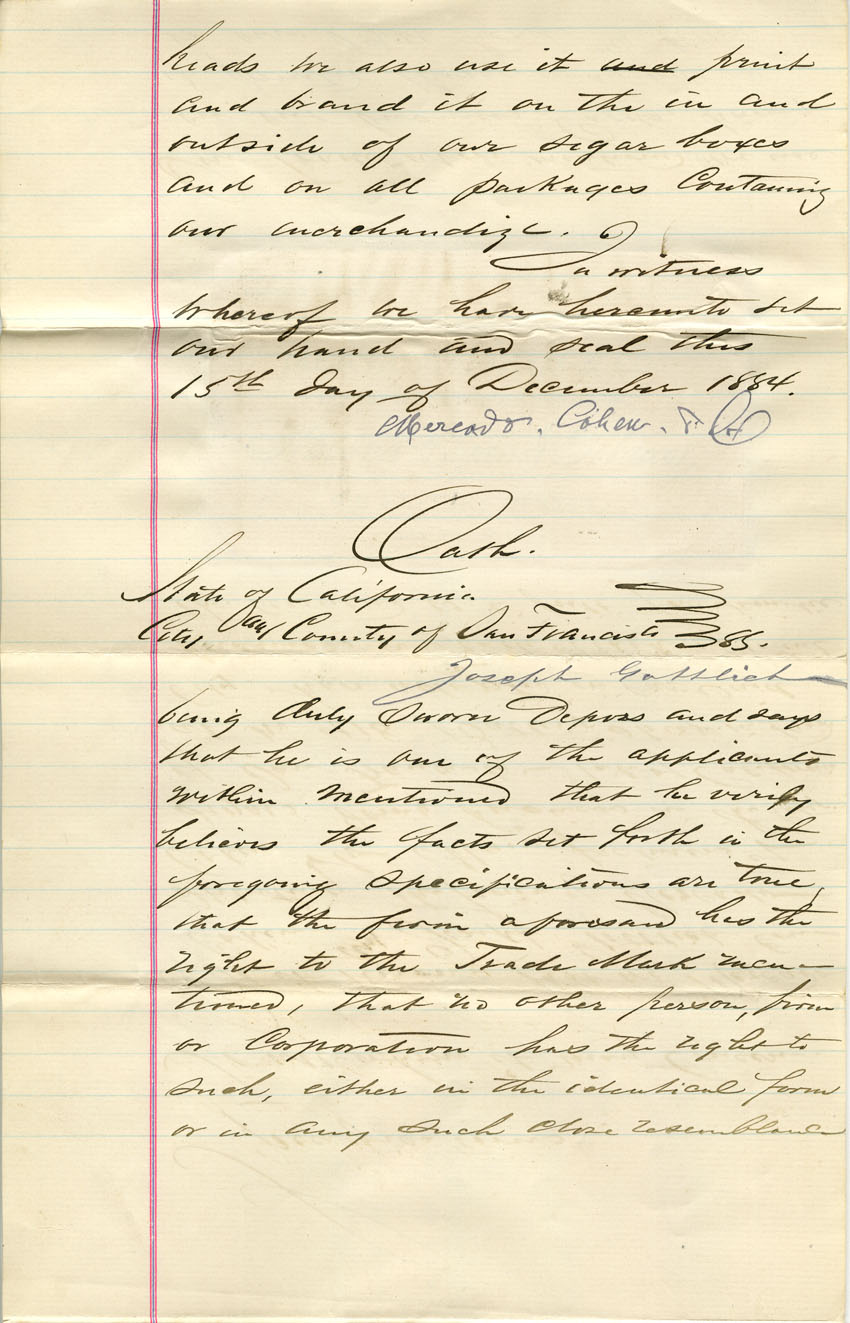 heads we also use it and print
and brand it on the in and
outside of our segar boxes
and on all packages Containing
our merchandize.
In witness
whereof we have hereunto set
our hand and seal this
15th day of December 1884.
Mercado. Cohen. & Co
Oath.
State of California
City and County of San Francisco SS.
Joseph Gottlieb
being duly Sworn Deposs and says
that he is one of the applicants
within mentioned that he verily
believes the facts set forth in the
foregoing specifications are true,
that the firm aforesaid has the
right to the Trade Mark men-
tioned, that no other person, firm
or Corporation has the right to
such, either in the identical form
or in any such close resemblance